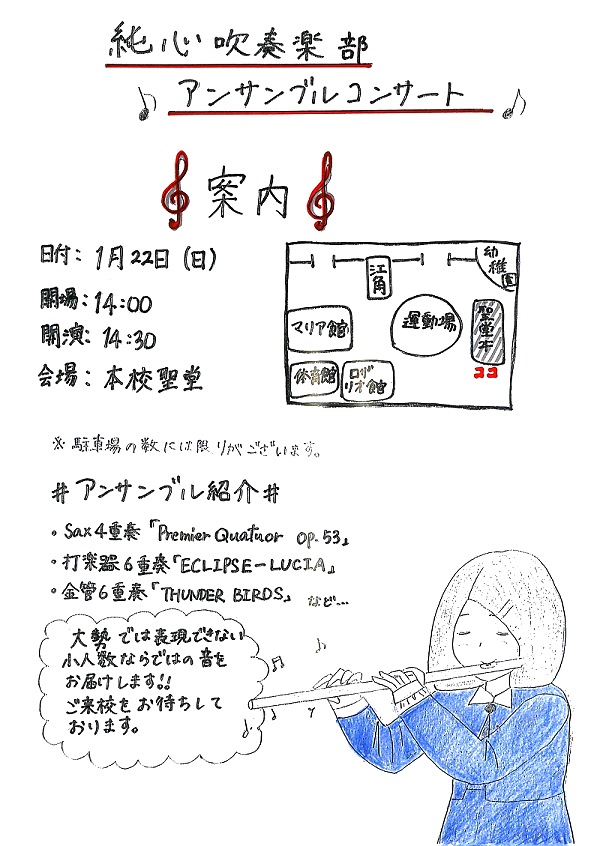 純心吹奏楽部
アンサンブルコンサート
案内
日付: 1月22日(日)
開場: 14:00
開演: 14:30
会場: 本校聖堂
幼稚園
江角
マリア館
運動場
聖堂
ココ
体育館
ロザリオ館
※駐車場の数には限りがございます。
#アンサンブル紹介#
・Sax4重奏「Premier Quatuor op.53」
・打楽器6重奏「ECLIPSE-LUCIA」
・金管6重奏「THUNDER BIRDS」 など…
大勢では表現できない
小人数ならではの音を
お届けします!!
ご来校をお待ちして
おります。